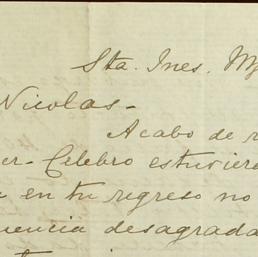 Sta. Ines. My
Nicolas-
Acabo de r
er- Celebro estuviere
en tu regreso no
uencia desagrada